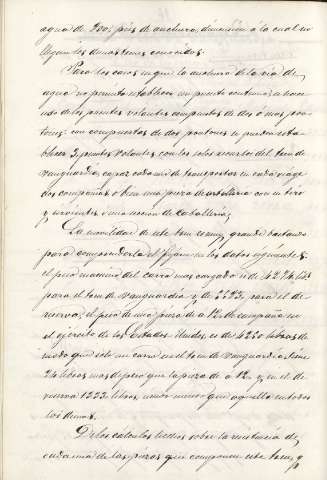 agua de 200 piés de anchura, dimension á la cual no
llegan los demas trenes conocidos.
Para los casos en que la anchura de la via de
agua no permita establecer un puente continuo, se hace
uso de los puentes volantes compuestos de dos ó mas ponto-
nes: un compuestos de dos pontones se pueden esta-
blecer 2 puentes volantes con los solos recursos del tren de
vanguardia, capaz cada uno de transportar en cada viage
dos compañias ó bien una pieza de artilleria con su tiro
y sirvientes ó una seccion de caballeria.
La movilidad de este tren es muy grande bastando
para comprenderla el fijarse en los datos siguientes:
el peso maximo del carro mas cargado es de 4274 lib.
para el tren de vanguardia y de para el de
reserva; el peso de una pieza de á 12 de campaña en
el ejército de los Estados-Unidos, es de 4250 libras de
modo que solo un carro en el tren de vanguardia tiene
24 libras mas de peso que la pieza de á 12 y en el de
reserva 1222 libras, menos que aquello en todos
los demas.
De los cálculos hechos sobre la resistencia de
cada una de las piezas que componen este tren, y